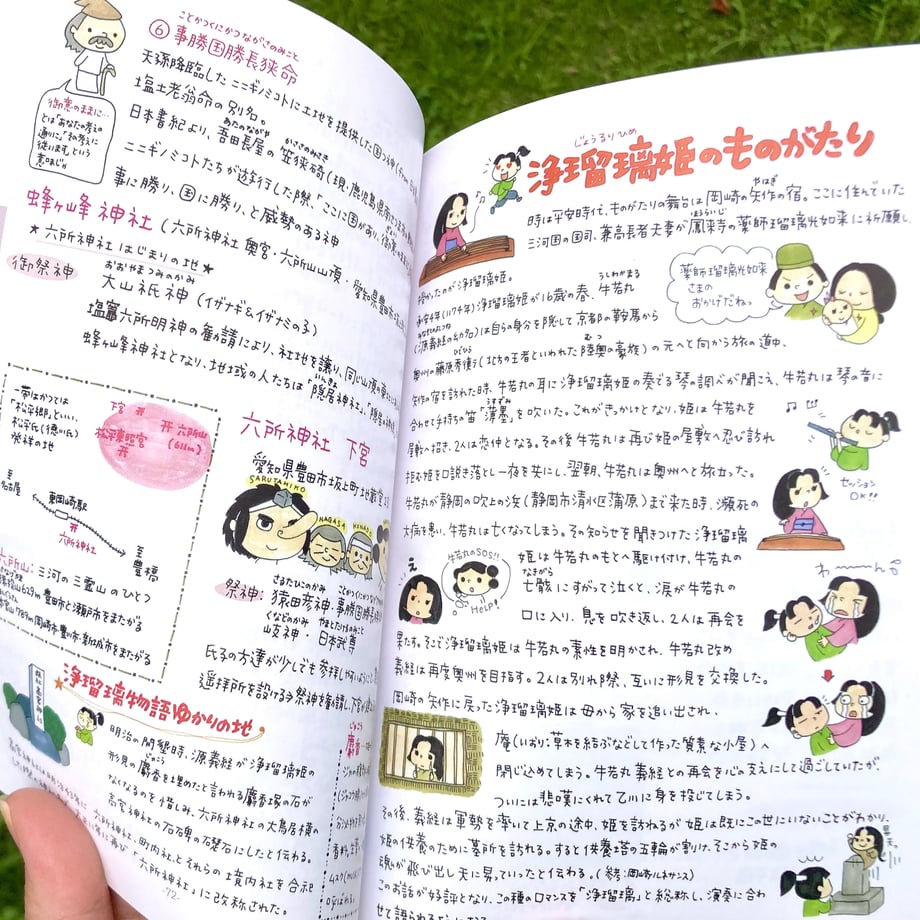 ことかつくにかつながさのみこと
⑥ 事勝国勝長狭命
天孫降臨したニニギノミコトに土地を提供した国つ神
塩土老翁命の別名。
あたのながや かささのみさき
日本書紀より、吾田長屋の笠狭碕(現・鹿児島県
ニニギノミコトたちが遊行した際、「ここに国があり、
事に勝り、国に勝り、と威勢のある神
御意のままに…
とは「あなたの考えの
通りに」「その考えに
従います」という
意味じゃ
蜂ヶ峰神社(六所神社 奥宮・六所山山頂・愛知県豊田市
★六所神社はじまりの地★
御祭神
おおやまつみのかみ
大山祇神(イザナギ&イザナミの子)
塩竈六所明神の番請により、社地を譲り、同じ山頂
蜂ヶ峰神社となり、地域の人たちは「隠居神社」
一帯はかつては
「松平郷」といい、
松平氏(徳川氏)
発祥の地
下宮
六所山
(611m)
松平東照宮
至
名古屋
東岡崎駅
六所神社
至
豊橋
六所山:三河の三霊山のひとつ
629m 豊田市と瀬戸市をまたがる
789m 岡崎市・豊川市・新城市をまたがる
六所神社 下宮
愛知県豊田市坂上町地蔵堂
SARUTAHIKO
NAGASA
さるたひこのかみ
祭神:猿田彦神・事勝国勝長
くなどのかみ やまとたけるのみこと
岐神・日本武尊
氏子の方達が少しでも参拝し
遥拝所を設ける→祭神を勧請し、下宮が
浄瑠璃物語ゆかりの地
明治の開墾時、源義経が浄瑠璃姫の
じゃこう
形見の麝香を埋めたと言われる麝香塚の石が
なくなるのを惜しみ、六所神社の大鳥居横の
高宮神社の石碑の石礎石にしたと伝わる。
六所神社、町内社とそれらの境内社を合祀
「六所神社」に改称された。
72
じょうるりひめ
浄瑠璃姫のものがたり
時は平安時代、ものがたりの舞台は岡崎・矢作の宿。ここに住んでいた
三河国の国司、兼高長者夫妻が鳳来寺の薬師瑠璃光如来に祈願し、
授かったのが浄瑠璃姫。
薬師瑠璃光如来
さまの
おかげだねっ
うしわかまる
承安4年(1174年)浄瑠璃姫が16歳の春、牛若丸
みなもとのよしつね
(源義経の幼名)は自らの身分を隠して京都の鞍馬から
ひでひら むつ
奥州の藤原秀衡(北方の王者といわれた陸奥の豪族)の元へと向かう旅の道中、
矢作の宿を訪れた時、牛若丸の耳に浄瑠璃姫の奏でる琴の調べが聞こえ、牛若丸は琴の音に
うすずみ
合わせて手持ちの笛「薄墨」を吹いた。これがきっかけとなり、姫は牛若丸を
屋敷へ招き、2人は恋仲となる。その後牛若丸は再び姫の屋敷へ忍び訪れ
拒む姫を口説き落とし一夜を共にし、翌朝、牛若丸は奥州へと旅立った。
牛若丸が静岡の吹上の浜(静岡市清水区蒲原)まで来た時、瀕死の
大病を患い、牛若丸は亡くなってしまう。その知らせを聞きつけた浄瑠璃
セッション
OK!!
え
牛若丸のSOS!!
HELP!
姫は牛若丸のもとへ駆け付け、牛若丸の
なきがら
亡骸にすがって泣くと、涙が牛若丸の
口に入り、息を吹き返し、2人は再会を
わーーーん
果たす。そこで浄瑠璃姫は牛若丸の素性を明かされ、牛若丸改め
義経は再度奥州を目指す。2人は別れ際、互いに形見を交換した。
岡崎の矢作に戻った浄瑠璃姫は母から家を追い出され、
庵(いおり:草木を結ぶなどして作った質素な小屋)へ
閉じ込めてしまう。牛若丸義経との再会を心の支えにして過ごしていたが、
ついには悲嘆にくれて乙川に身を投じてしまう。
その後、義経は軍勢を率いて上京の途中、姫を訪ねるが姫は既にこの世にいないことがわかり、
姫の供養のために墓所を訪れる。すると供養塔の五輪が割け、そこから姫の
魂が飛び出し天に昇っていったと伝わる。(参考:岡崎ルネサンス)
このお話が好評となり、この種のロマンスを「浄瑠璃」と総称し、演奏に合わ
せて語られる
昇天。